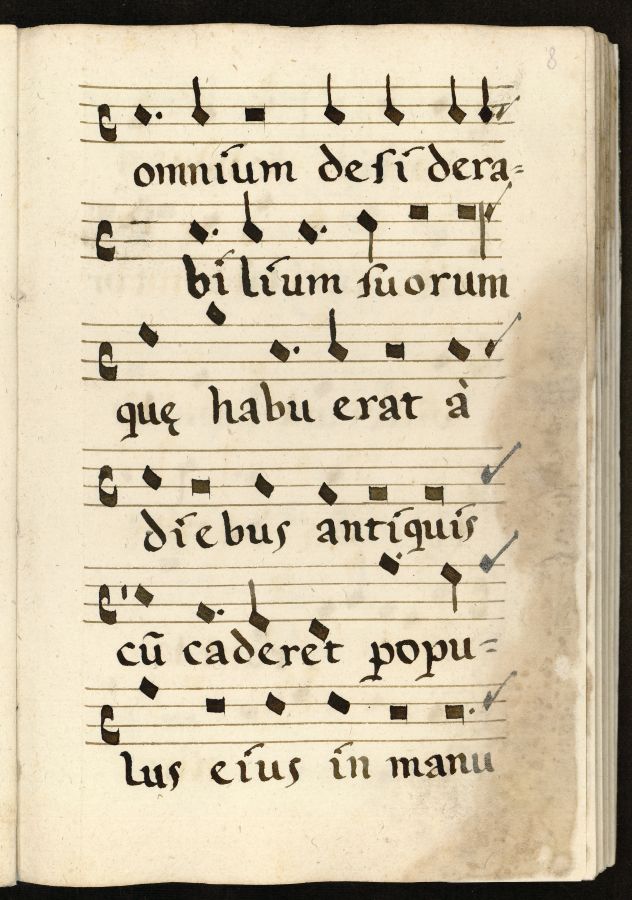 8
omnium desidera=
bilium suorum
quę habuerat à
diebus antiquis
cū caderet popu=
lus eius in manu